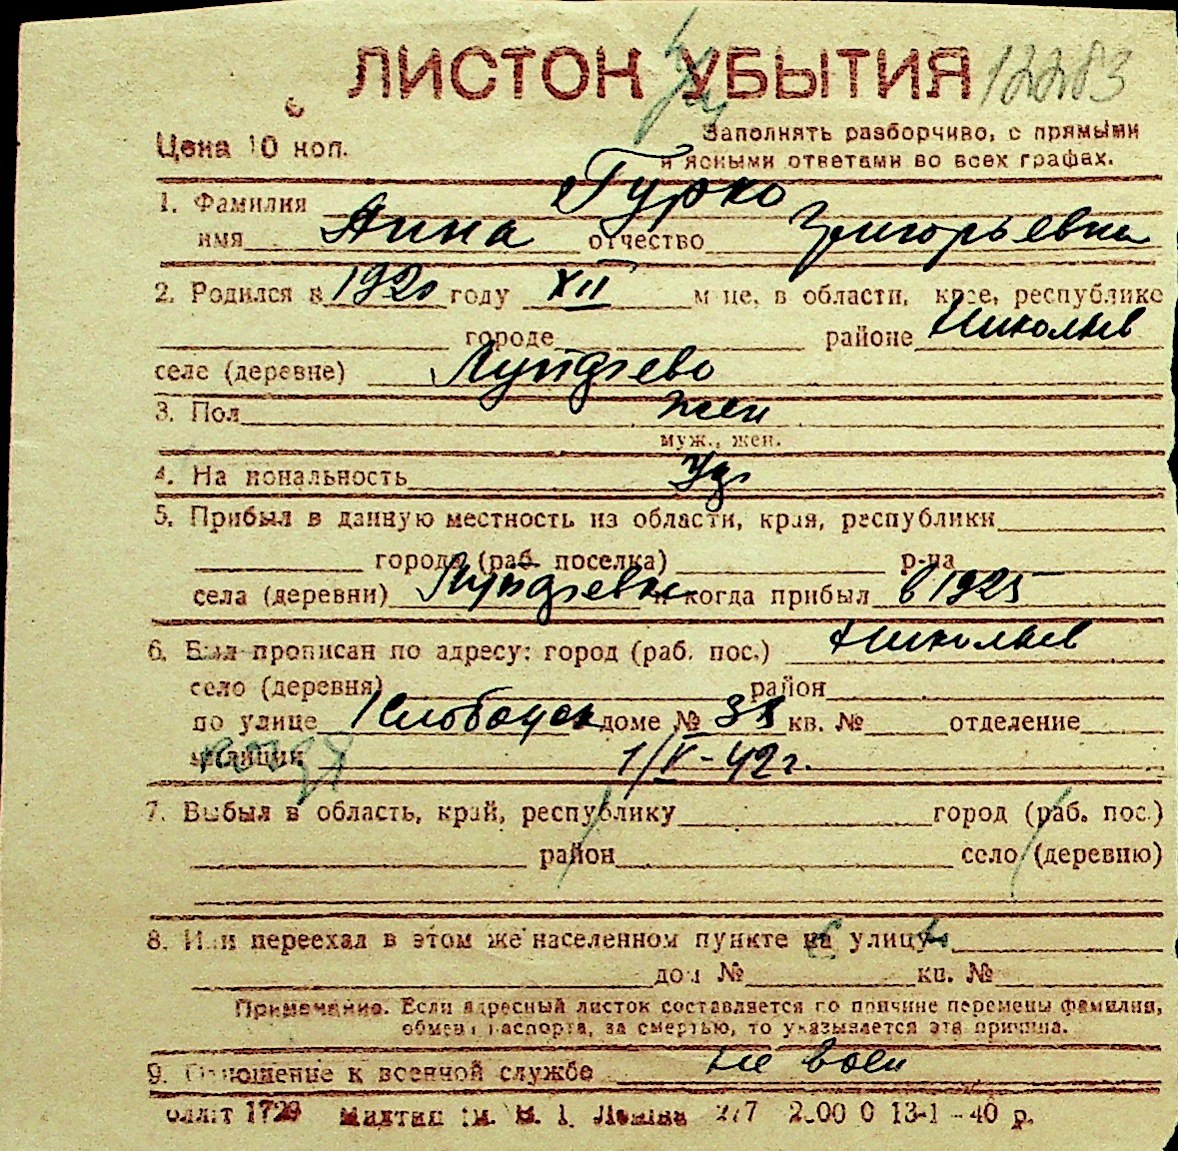 ЛИСТОК УБЫТИЯ 12283
Цена 10 коп.
Заполнять разборчиво, с прямыми
и ясными ответами во всех графах.
1. Фамилия Гурко
имя Анна отчество Григорьевна
2. Родился в 1920 году XII м-це, в области, крае, республике
городе районе Николаев
селе (деревне)
3. Пол жен
муж., жен.
4. Национальность
5. Прибыл в данную местность из области, края, республики
города (раб. поселка) р-на
села (деревни) и когда прибыл в 1925
6. Был прописан по адресу: город (раб. пос.) Николаев
село (деревня) район
по улице Слободск доме № кв. № отделение
милиции 1/V-42 г.
7. Выбыл в область, край, республику город (раб. пос.)
район село (деревню)
8. Или переехал в этом же населенном пункте на улицу
дом № кв. №
Примечание. Если адресный листок составляется по причине перемены фамилии,
обмена паспорта, за смертью, то указывается эта причина.
9. Отношение к военной службе не воен
1729 им. В. И. Ленина 13-1-40 р.